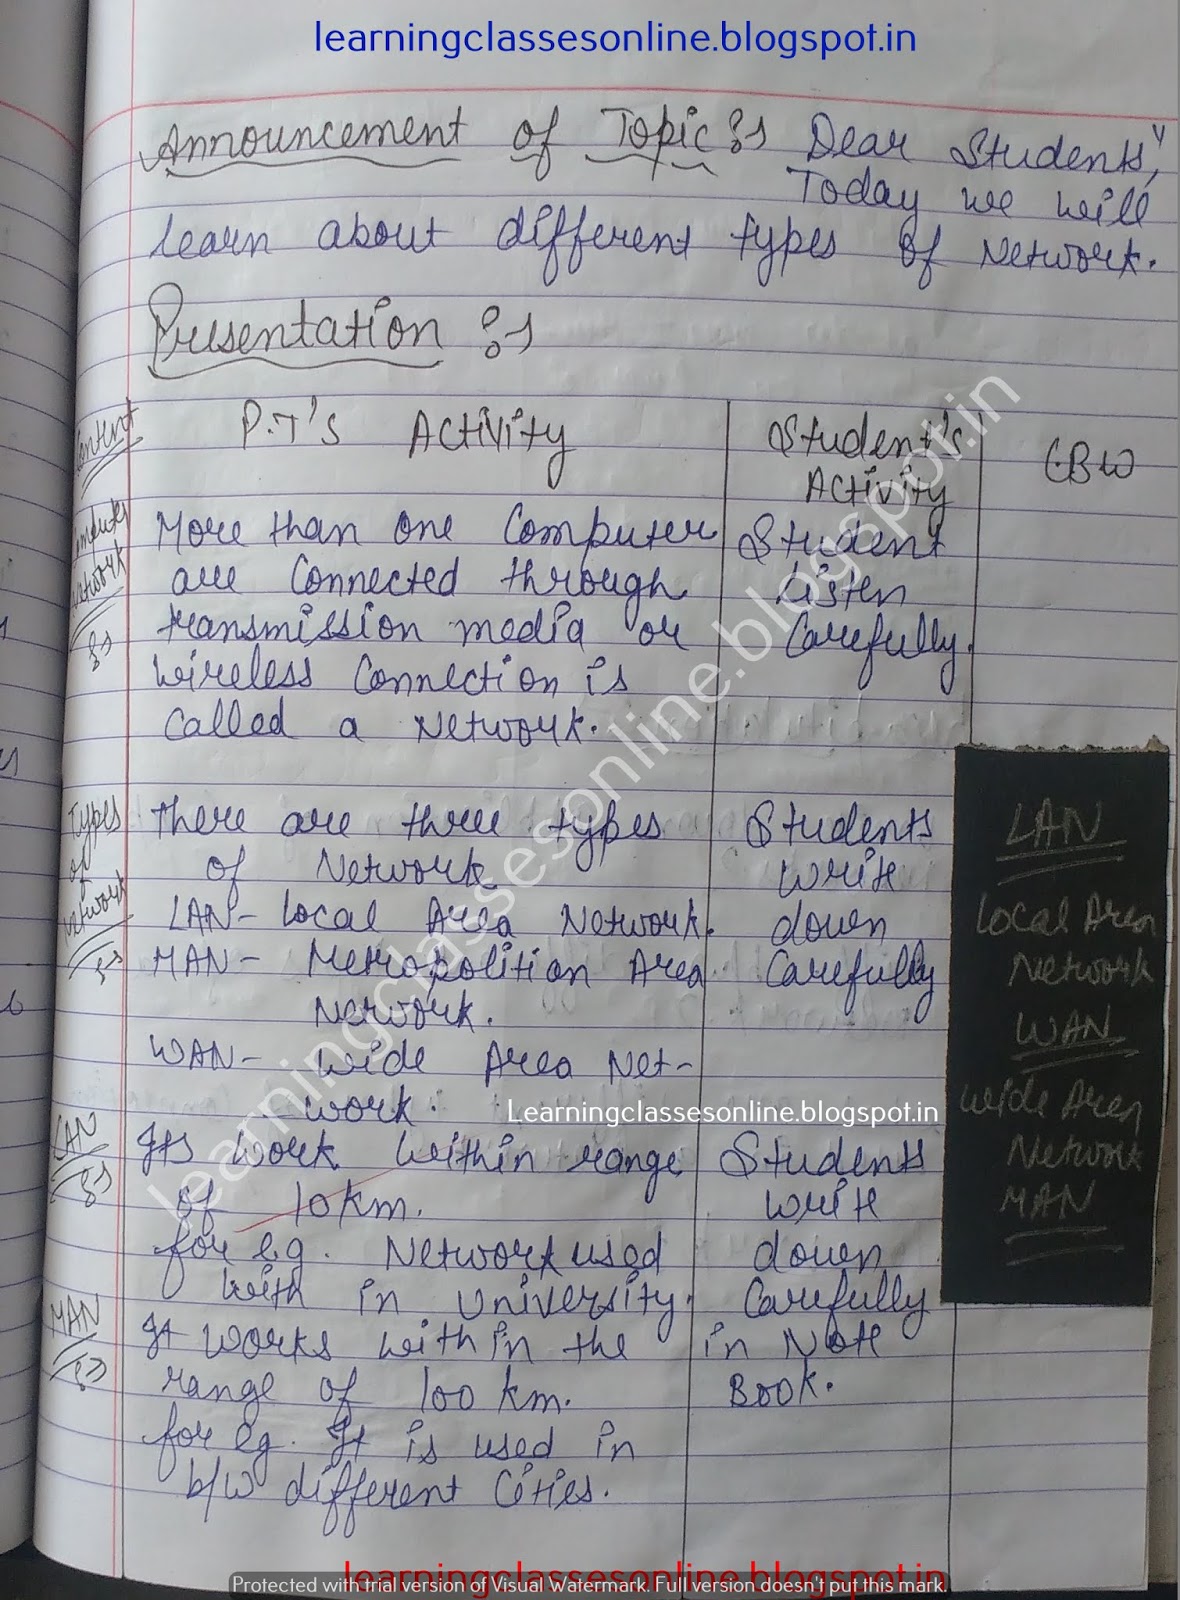 learningclassesonline.blogspot.in
Announcement of Topic :- Dear Students,
Today we will
learn about different types of Network.
Presentation :-
Content
P.T's Activity
Student's
Activity
CBW
Computer
Network
:-
More than one Computer
are Connected through
transmission media or
wireless Connection is
called a Network.
Student
listen
Carefully.
Types
of
Network
:-
There are three types
of Network
LAN- Local Area Network.
MAN- Metropolition Area
Network.
WAN- wide Area Net-
work.
Students
write
down
Carefully
LAN
Local Area
Network
WAN
Wide Area
Network
MAN
Learningclassesonline.blogspot.in
LAN
:-
Its work within range
of 10 km.
for e.g. Network used
with in University.
Students
write
down
Carefully
in Note
Book.
MAN
:-
It works with in the
range of 100 km.
for eg. It is used in
b/w different Cities.
learningclassesonline.blogspot.in
learningclassesonline.blogspot.in
Protected with trial version of Visual Watermark. Full version doesn't put this mark.